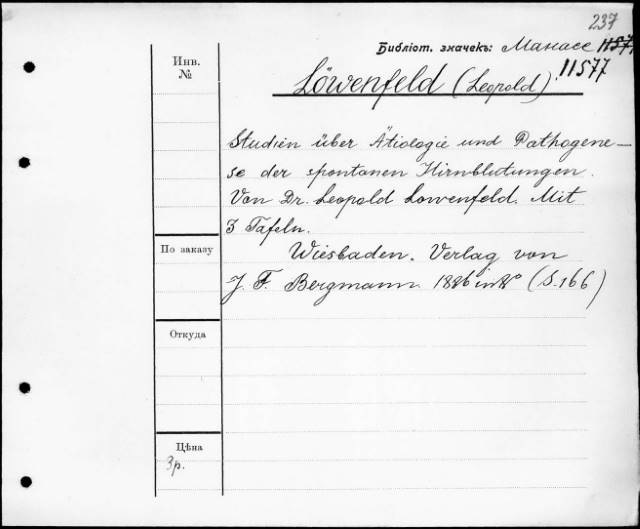 237
Библіот. значекъ: Манасе 11577
11577
Löwenfeld (Leopold).
Инв.
№
Studien über Ätiologie und Pathogene—
se der spontanen Hirnblutungen.
Von Dr. Leopold Lowenfeld. Mit
3 Tafeln.
По заказу
Wiesbaden. Verlag von
J. F. Bergmann 1886 in 8° (S. 166)
Откуда
Цѣна
3р.